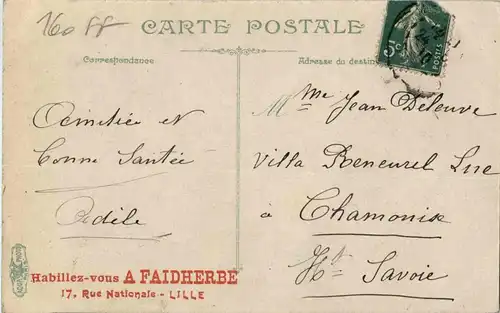 160 FF
CARTE POSTALE
Correspondance
Adresse du destin
5c
POSTES
Amitiée et
Bonne Santée
Adèle
Mme Jean Deleuve
Villa
à
Chamonix
Hte Savoie
Habillez-vous A FAIDHERBE
17, Rue Nationale - LILLE